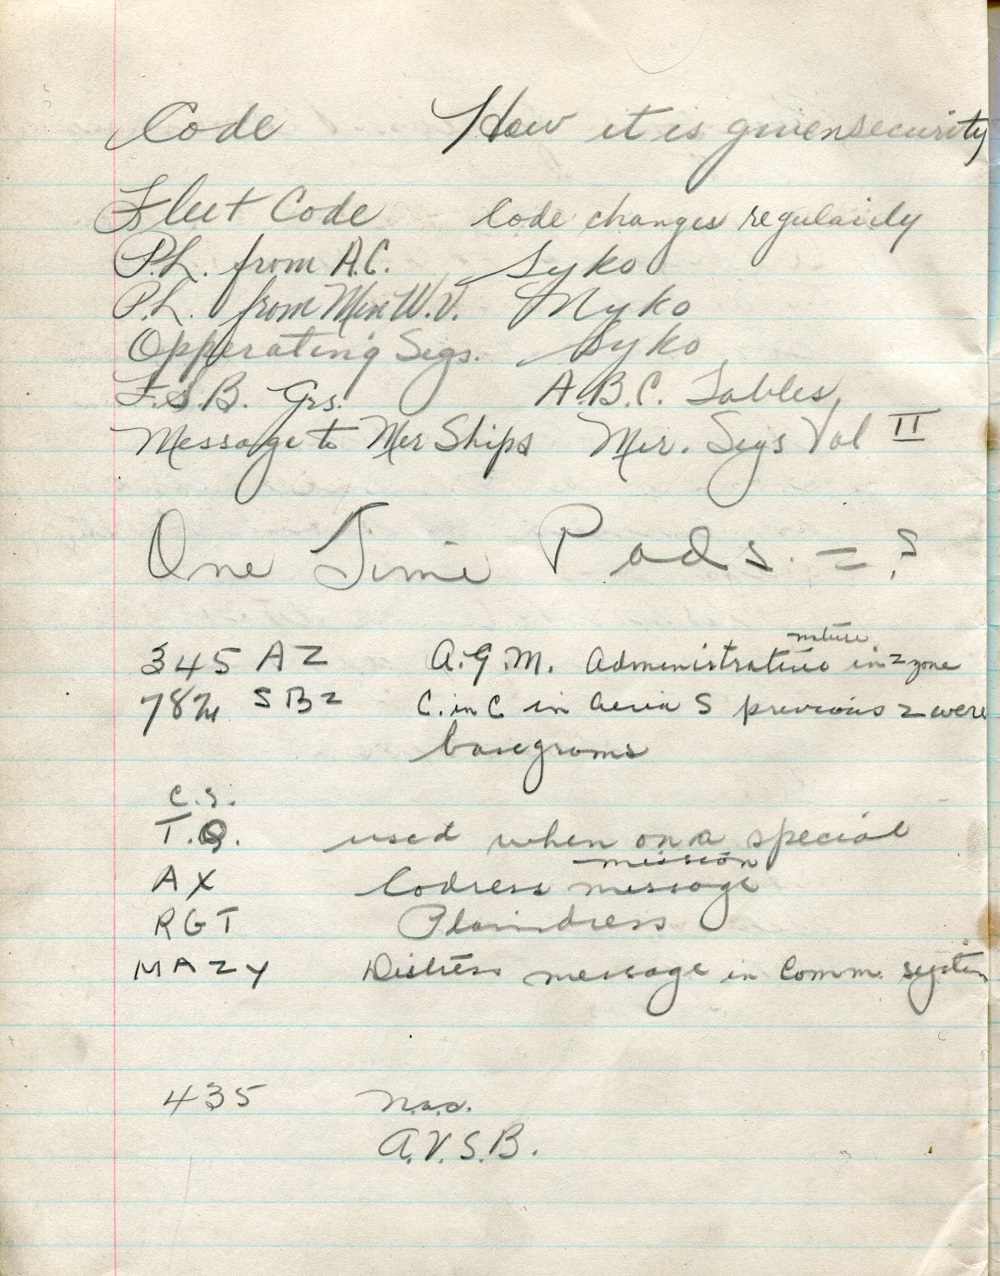 Code How it is given security
Fleet Code Code changes regularily
P.L. from A.C. Syko
P.L. from Min W.V. Nyko
Opperating Sigs. Syko
F.S.B. Grs. A.B.C. Tables
Message to Mer Ships Mer. Sigs Vol II
One Time Pads. = ?
345 AZ A.G.M. Administrative nature in z zone
782 SBZ C. in C in aeria S previous z were
basegrams
C.S.
T.Q. used when on a special
mission
AX Codress message
RGT Plaindress
MAZY Distress message in Comm. system
435 n.a.s.
A.V.S.B.